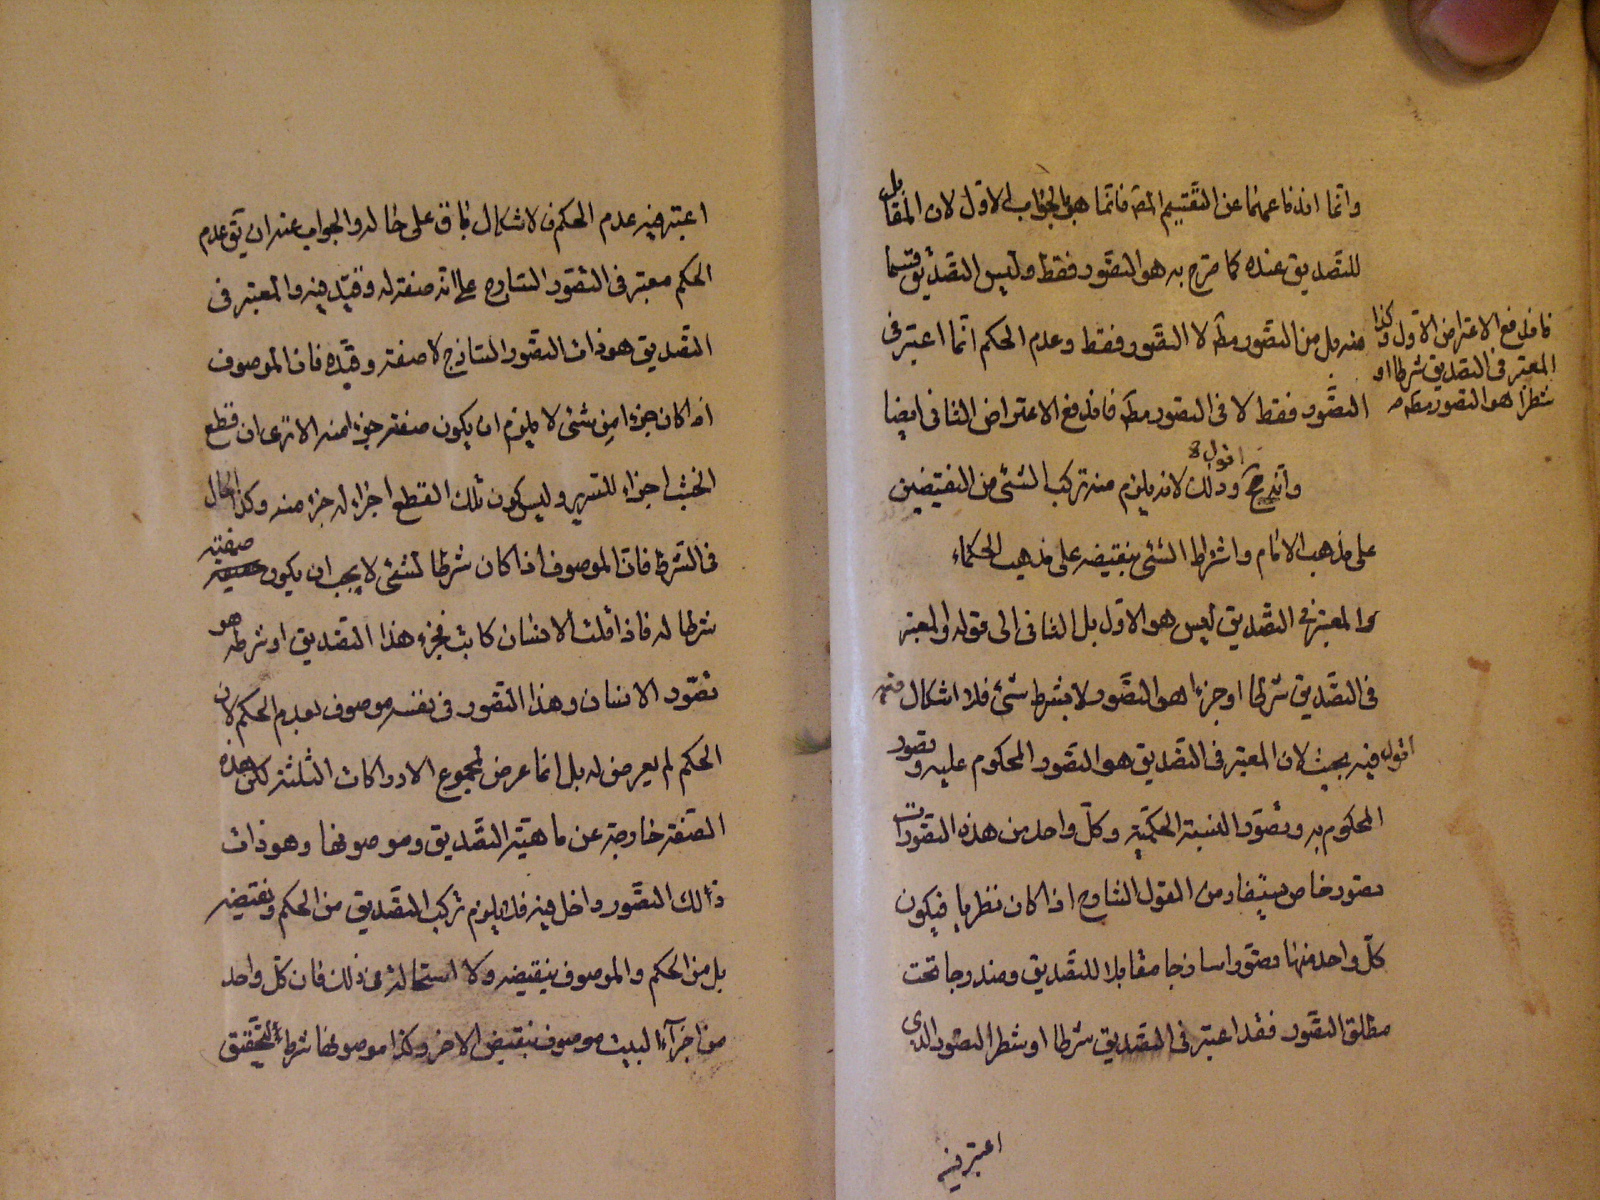 وانما اندفاعهما عن التقسيم الثة فانما هو بالجواب الاول لان المقابل
للتصديق عنده كما صرح به هو التصور فقط وليس التصديق قسما
منه بل من التصور مطه لا التصور فقط وعدم الحكم انما اعتبر فى
التصور فقط لا فى التصور مطه فاندفع الاعتراض الثانى ايضا
فاندفع الاعتراض الاول وكذا
المعتبر فى التصديق شرطا او
شطرا هو التصور مطه صه
وانه مح اقول وذلك لانه يلزم منه تركب الشئ من النقيضين
على مذهب الامام واشتراط الشئ بنقيضه على مذهب الحكماء
والمعتبر فى التصديق ليس هو الاول بل الثانى الى قوله والمعتبر
فى التصديق شرطا او جزءا هو التصور لا بشرط شئ فلا اشكال
اقول فيه بحث لان المعتبر فى التصديق هو التصور المحكوم عليه وتصور
المحكوم به وتصور النسبة الحكمية وكل واحد من هذه التصورات
تصور خاص يستفاد من القول الشارح اذا كان نظريا فيكون
كل واحد منها تصورا ساذجا مقابلا للتصديق ومندرجا تحت
مطلق التصور فقد اعتبر فى التصديق شرطا او شطرا التصور الذى
اعتبر فيه
اعتبر فيه عدم الحكم فالاشكال باق على حاله والجواب عنه ان يق عدم
الحكم معتبر فى التصور الساذج على انه صفة له وقيد فيه والمعتبر فى
التصديق هو ذات التصور الساذج لا صفته وقيده فان الموصوف
اذا كان جزءا من شئ لا يلزم ان يكون صفته جزءا منه الا ترى ان قطع
الخشب اجزاء للسرير وليس كون تلك القطع اجزاء له جزء منه وكذا الحال
فى الشرط فان الموصوف اذا كان شرطا لشئ لا يجب ان يكون صفته
شرطا له فاذا قلت الانسان كاتب فجزء هذا التصديق او شرطه هو
تصور الانسان وهذا التصور فى نفسه موصوف بعدم الحكم لان
الحكم لم يعرض له بل انما عرض لمجموع الادراكات الثلثة لكن هذه
الصفة خارجة عن ماهية التصديق وموصوفها وهو ذات
ذلك التصور داخل فيه فلا يلزم تركب التصديق من الحكم ونقيضه
بل من الحكم والموصوف بنقيضه ولا استحالة فى ذلك فان كل واحد
من اجزآء البيت موصوف بنقيض الاخر وكذا موصوفها شرط لتحقيق